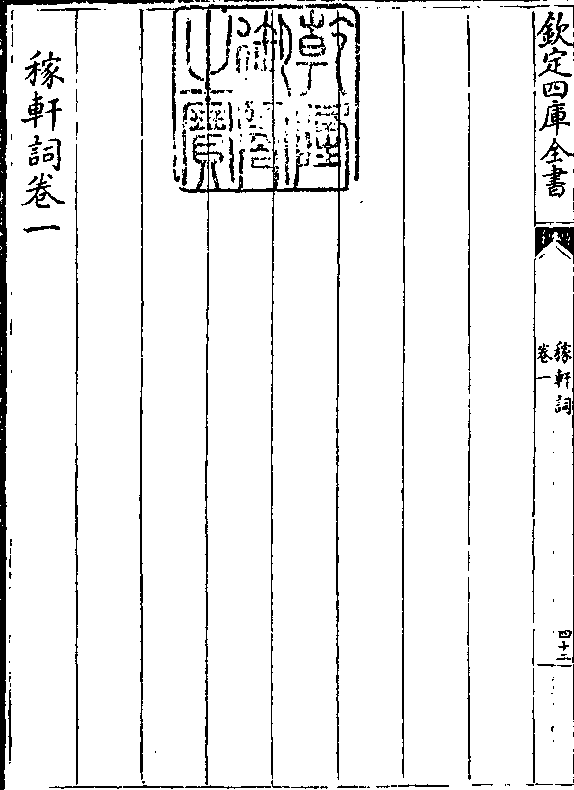 欽定四庫全書
稼軒詞
卷一
四十二
乾隆御覽之寶
稼軒詞卷一